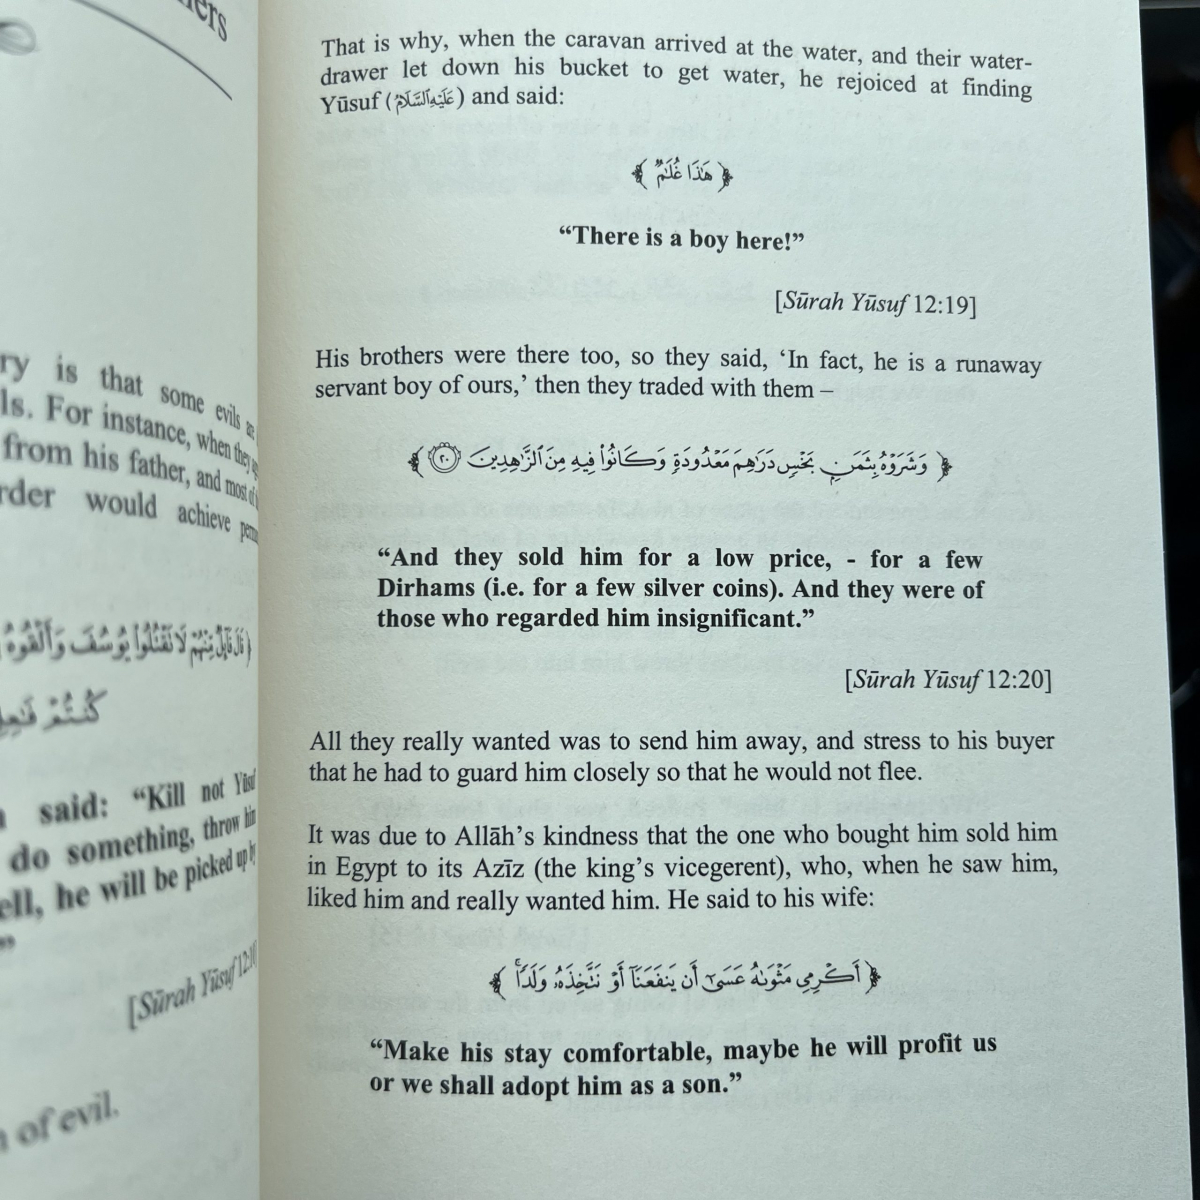 ry is that some evils
ls. For instance, when they
from his father, and most of
rder would achieve
لَا تَقْتُلُوا۟ يُوسُفَ وَأَلْقُوهُ
كُنتُمْ
said: “Kill not Yūsuf
do something, throw him
ell, he will be picked up by
”
[Sūrah Yūsuf 12:10
of evil.
That is why, when the caravan arrived at the water, and their water-
drawer let down his bucket to get water, he rejoiced at finding
Yūsuf (عَلَيْهِ ٱلسَّلَامُ) and said:
﴿ هَٰذَا غُلَٰمٌ ﴾
“There is a boy here!”
[Sūrah Yūsuf 12:19]
His brothers were there too, so they said, ‘In fact, he is a runaway
servant boy of ours,’ then they traded with them –
﴿ وَشَرَوْهُ بِثَمَنٍۭ بَخْسٍ دَرَٰهِمَ مَعْدُودَةٍ وَكَانُوا۟ فِيهِ مِنَ ٱلزَّٰهِدِينَ ٢٠ ﴾
“And they sold him for a low price, - for a few
Dirhams (i.e. for a few silver coins). And they were of
those who regarded him insignificant.”
[Sūrah Yūsuf 12:20]
All they really wanted was to send him away, and stress to his buyer
that he had to guard him closely so that he would not flee.
It was due to Allāh’s kindness that the one who bought him sold him
in Egypt to its Azīz (the king’s vicegerent), who, when he saw him,
liked him and really wanted him. He said to his wife:
﴿ أَكْرِمِى مَثْوَىٰهُ عَسَىٰٓ أَن يَنفَعَنَآ أَوْ نَتَّخِذَهُۥ وَلَدًا ۚ ﴾
“Make his stay comfortable, maybe he will profit us
or we shall adopt him as a son.”